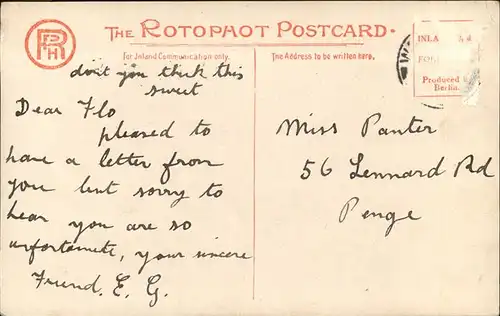 THE ROTOPHOT POSTCARD.
R P H
For Inland Communication only.
The Address to be written here.
INLA
FOR
Produced
Berlin.
don't you think this
sweet
Dear Flo
pleased to
have a letter from
you but sorry to
hear you are so
unfortunate, your sincere
Friend. E. G.
Miss Panter
56 Lennard Rd
Penge